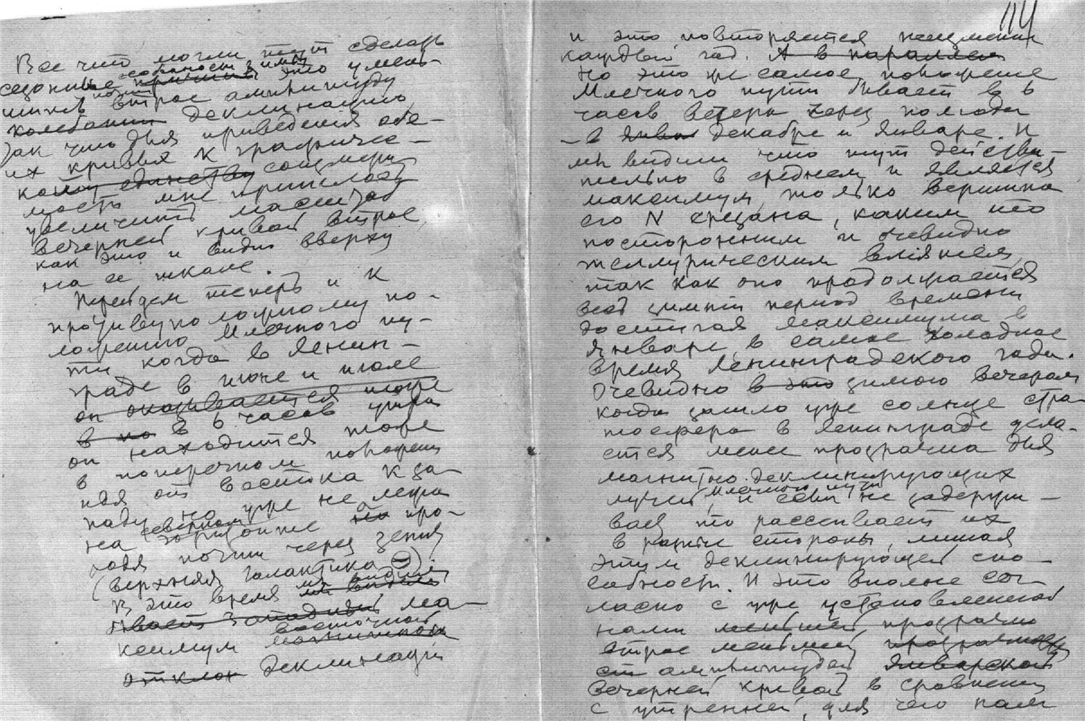 Все что могли тут сделать
сезонные особенности зимы это умень-
шить почти втрое амплитуду
колебаний деклинации,
так что для приведения обе-
их кривых к графиче-
скому единству соизмери
мость мне пришлось
увеличить масштаб
вечерней кривой втрое,
как это и видно вверху
на ее шкале.
Перейдем теперь и к
противуположному по-
ложению Млечного пу-
ти когда в Ленин-
граде в июне и июле
он оказывается тоже
в но в 6 часов утра
он находится тоже
в поперечном положении
идя от востока к за-
паду но уже не лежа
на северном горизонте а про-
ходя почти через зенит
(верхняя галактика).
В это время мы видим
ма-
ксимум восточной
деклинации
114
и это повторяется неизменно
каждый год. А в параллел
Но это же самое положение
Млечного пути бывает в 6
часов вечера через полгода
- в декабре и январе. И
мы видим что тут действи-
тельно в среднем и является
максимум, только вершина
его N срезана, каким то
посторонним и очевидно
теллурическим влиянием,
так как оно продолжается
весь зимний период времени
достигая максимума в
январе, в самое холодное
время Ленинградского года.
Очевидно в это зимою вечерам
когда зашло уже солнце стра
тосфера в Ленинграде дела-
ется менее прозрачна для
магнитно-деклинирующих
лучей Млечного пути и если не задержи-
вает то рассеивает их
в разные стороны, лишая
этим деклинирующей спо-
собности. И это вполне сог-
ласно с уже установленной
нами меньшей прозрачно
втрое меньшей
амплитудой январской
вечерней кривой в сравнении
с утренней, для чего нам